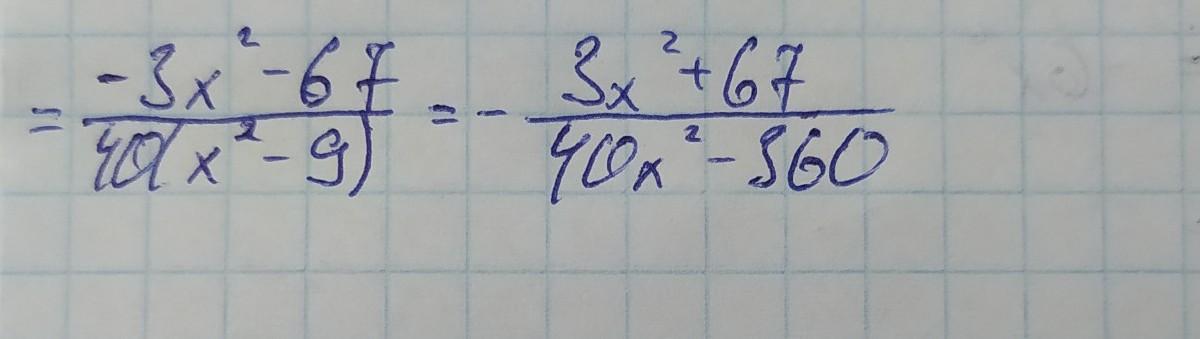 = (-3x² - 67)/(40(x² - 9)) = - (3x² + 67)/(40x² - 360)